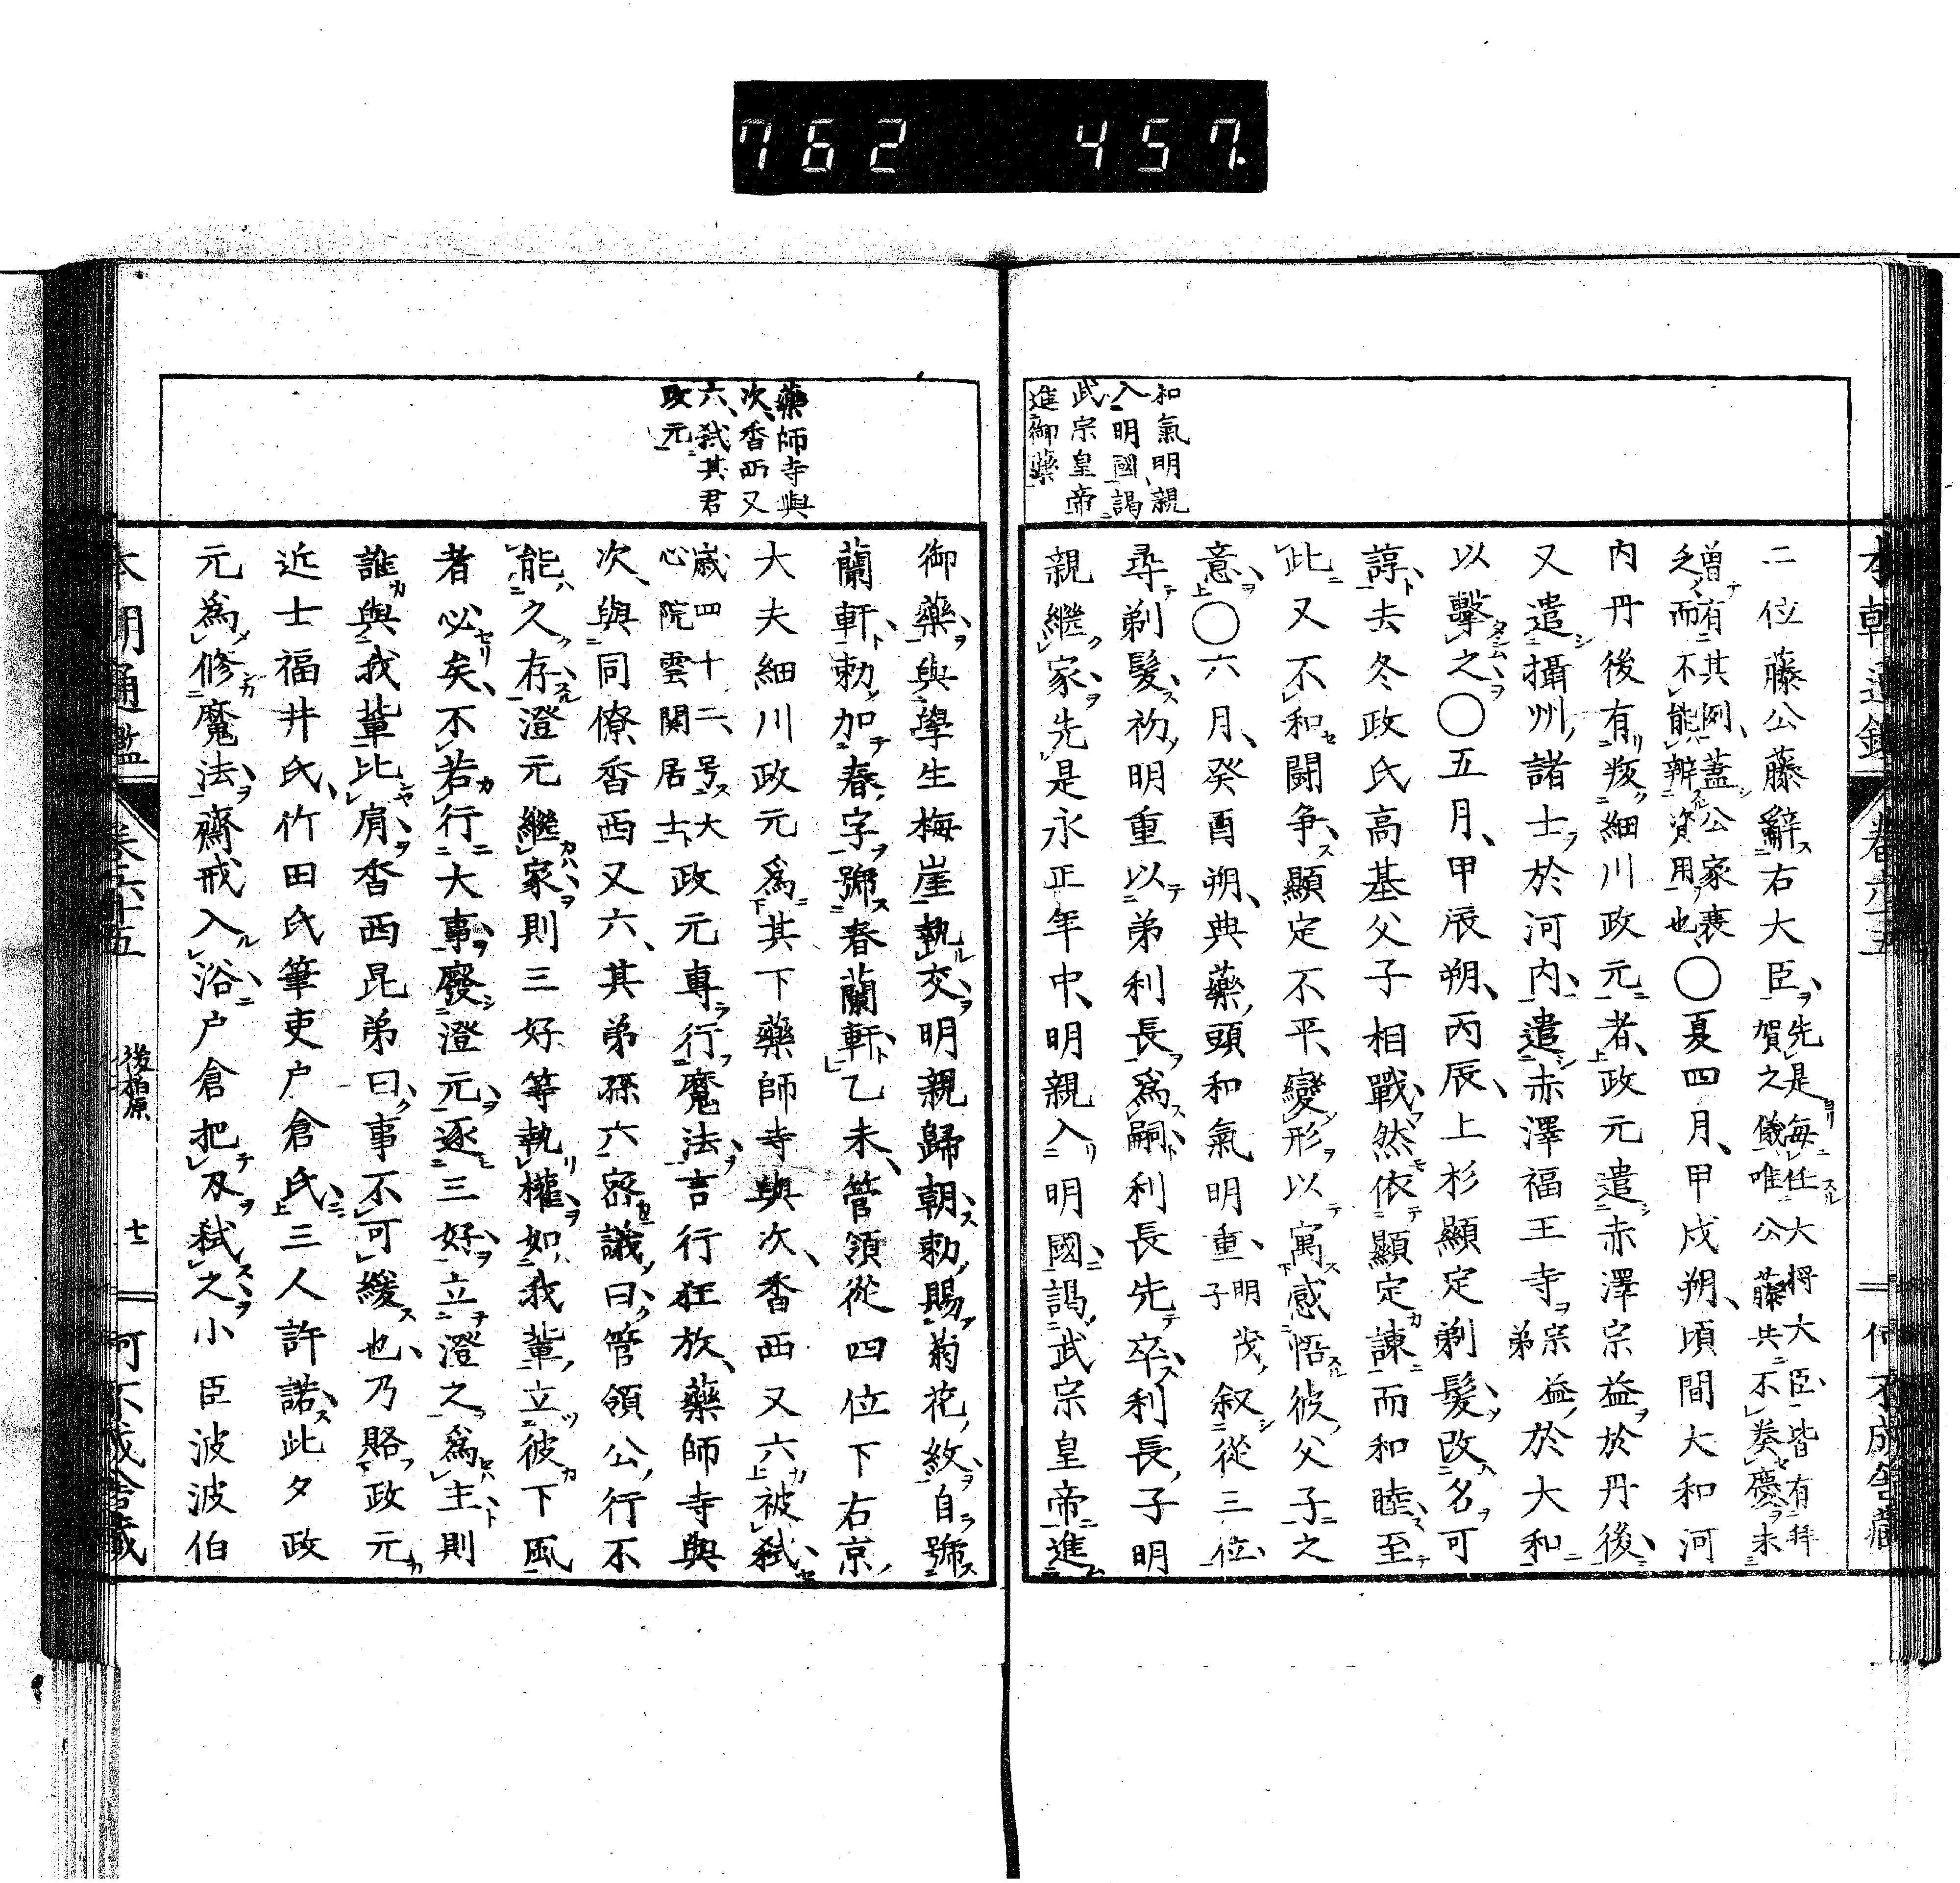 762 457
和氣明親
入明國謁
武宗皇帝
進御藥
二位藤公藤辭右大臣先是毎任大將大臣皆有拜
賀之儀唯公藤共不奏慶未
曽有其例蓋公家衰
乏而不能辨資用也〇夏四月甲戌朔頃間大和河
内丹後有叛細川政元者政元遣赤澤宗益於丹後
又遣攝州諸士於河内遣赤澤福王寺宗益弟於大和
以擊之〇五月甲辰朔丙辰上杉顯定剃髮改名可
諄去冬政氏高基父子相戰然依顯定諫而和睦至
此又不和鬪爭顯定不平變形以寓感悟彼父子之
意〇六月癸酉朔典藥頭和氣明重明茂子叙從三位
尋剃髮初明重以弟利長爲嗣利長先卒利長子明
親繼家先是永正年中明親入明國謁武宗皇帝進
本朝通鑑 卷六十五 何不成舎藏
藥師寺與
次香西又
六弑其君
政元
御藥與學生梅崖執交明親歸朝勅賜菊花紋自號
蘭軒勅加春字號春蘭軒乙未管領從四位下右京
大夫細川政元爲其下藥師寺與次香西又六被弑
歳四十二号大
心院雲関居士政元專行魔法言行狂放藥師寺與
次與同僚香西又六其弟孫六密議曰管領公行不
能久存澄元繼家則三好等執權如我輩立彼下風
者必矣不若行大事廢澄元逐三好立澄之爲主則
誰與我輩比肩香西昆弟曰事不可緩也乃賂政元
近士福井氏竹田氏筆吏戶倉氏三人許諾此夕政
元爲修魔法齋戒入浴戶倉把刄弑之小臣波波伯
本朝通鑑 卷六十五 後柏原 十二 何不成舎藏